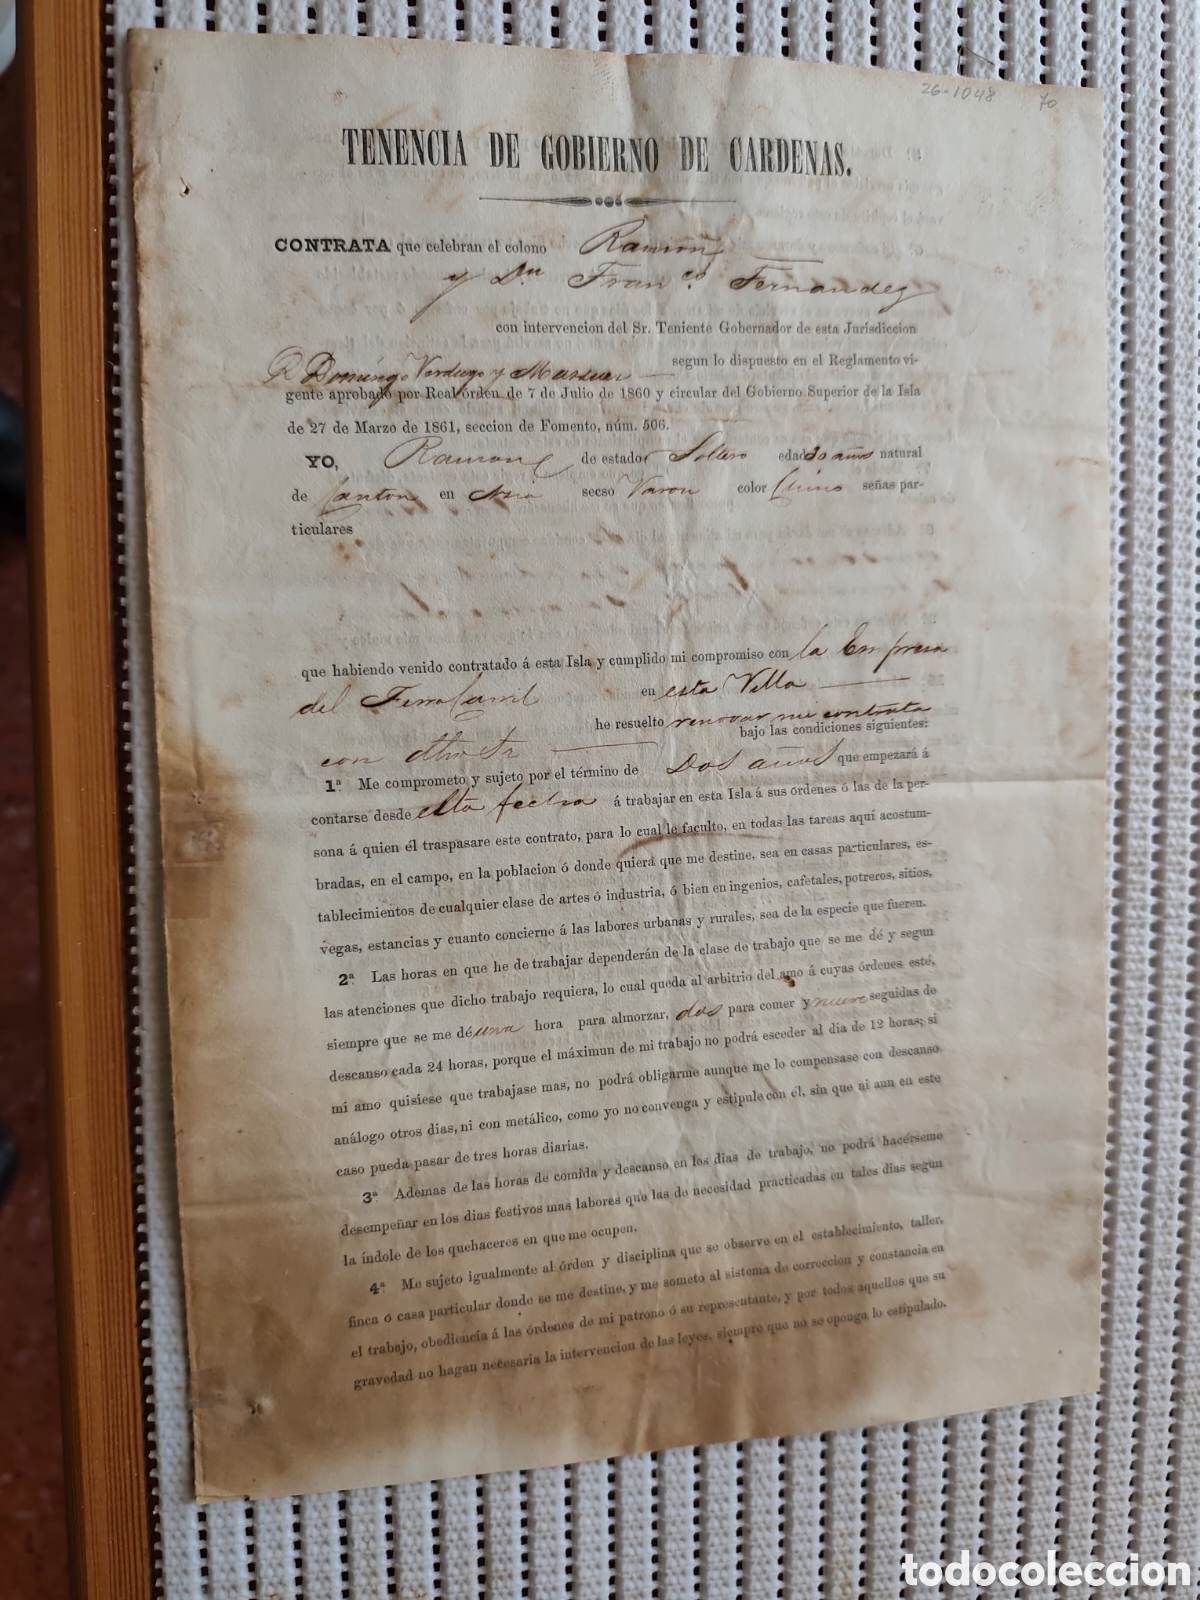 26-1048 70
TENENCIA DE GOBIERNO DE CARDENAS.
CONTRATA que celebran el colono Ramon
y Dn Franco Fernandez
con intervencion del Sr. Teniente Gobernador de esta Jurisdiccion
D Domingo Verdugo y Massieu segun lo dispuesto en el Reglamento vi-
gente aprobado por Real órden de 7 de Julio de 1860 y circular del Gobierno Superior de la Isla
de 27 de Marzo de 1861, seccion de Fomento, núm. 506.
YO, Ramon de estado Soltero edad 30 años natural
de Canton en Asia secso Varon color Chino señas par-
ticulares
que habiendo venido contratado á esta Isla y cumplido mi compromiso con la Empresa
del Ferro Carril en esta Villa
he resuelto renovar mi contrata
con dho Sr bajo las condiciones siguientes:
1ª Me comprometo y sujeto por el término de Dos años que empezará á
contarse desde esta fecha á trabajar en esta Isla á sus órdenes ó las de la per-
sona á quien él traspasare este contrato, para lo cual le faculto, en todas las tareas aquí acostum-
bradas, en el campo, en la poblacion ó donde quiera que me destine, sea en casas particulares, es-
tablecimientos de cualquier clase de artes ó industria, ó bien en ingenios, cafetales, potreros, sitios,
vegas, estancias y cuanto concierne á las labores urbanas y rurales, sea de la especie que fueren.
2ª Las horas en que he de trabajar dependerán de la clase de trabajo que se me dé y segun
las atenciones que dicho trabajo requiera, lo cual queda al arbitrio del amo á cuyas órdenes esté,
siempre que se me dé una hora para almorzar, dos para comer y nueve seguidas de
descanso cada 24 horas, porque el máximun de mi trabajo no podrá esceder al dia de 12 horas; si
mi amo quisiese que trabajase mas, no podrá obligarme aunque me lo compensase con descanso
análogo otros dias, ni con metálico, como yo no convenga y estipule con él, sin que ni aun en este
caso pueda pasar de tres horas diarias.
3ª Ademas de las horas de comida y descanso en los dias de trabajo, no podrá hacérseme
desempeñar en los dias festivos mas labores que las de necesidad practicadas en tales dias segun
la índole de los quehaceres en que me ocupen.
4ª Me sujeto igualmente al órden y disciplina que se observe en el establecimiento, taller,
finca ó casa particular donde se me destine, y me someto al sistema de correccion y constancia en
el trabajo, obediencia á las órdenes de mi patrono ó su representante, y por todos aquellos que su
gravedad no hagan necesaria la intervencion de las leyes, siempre que no se oponga lo estipulado.
todocoleccion